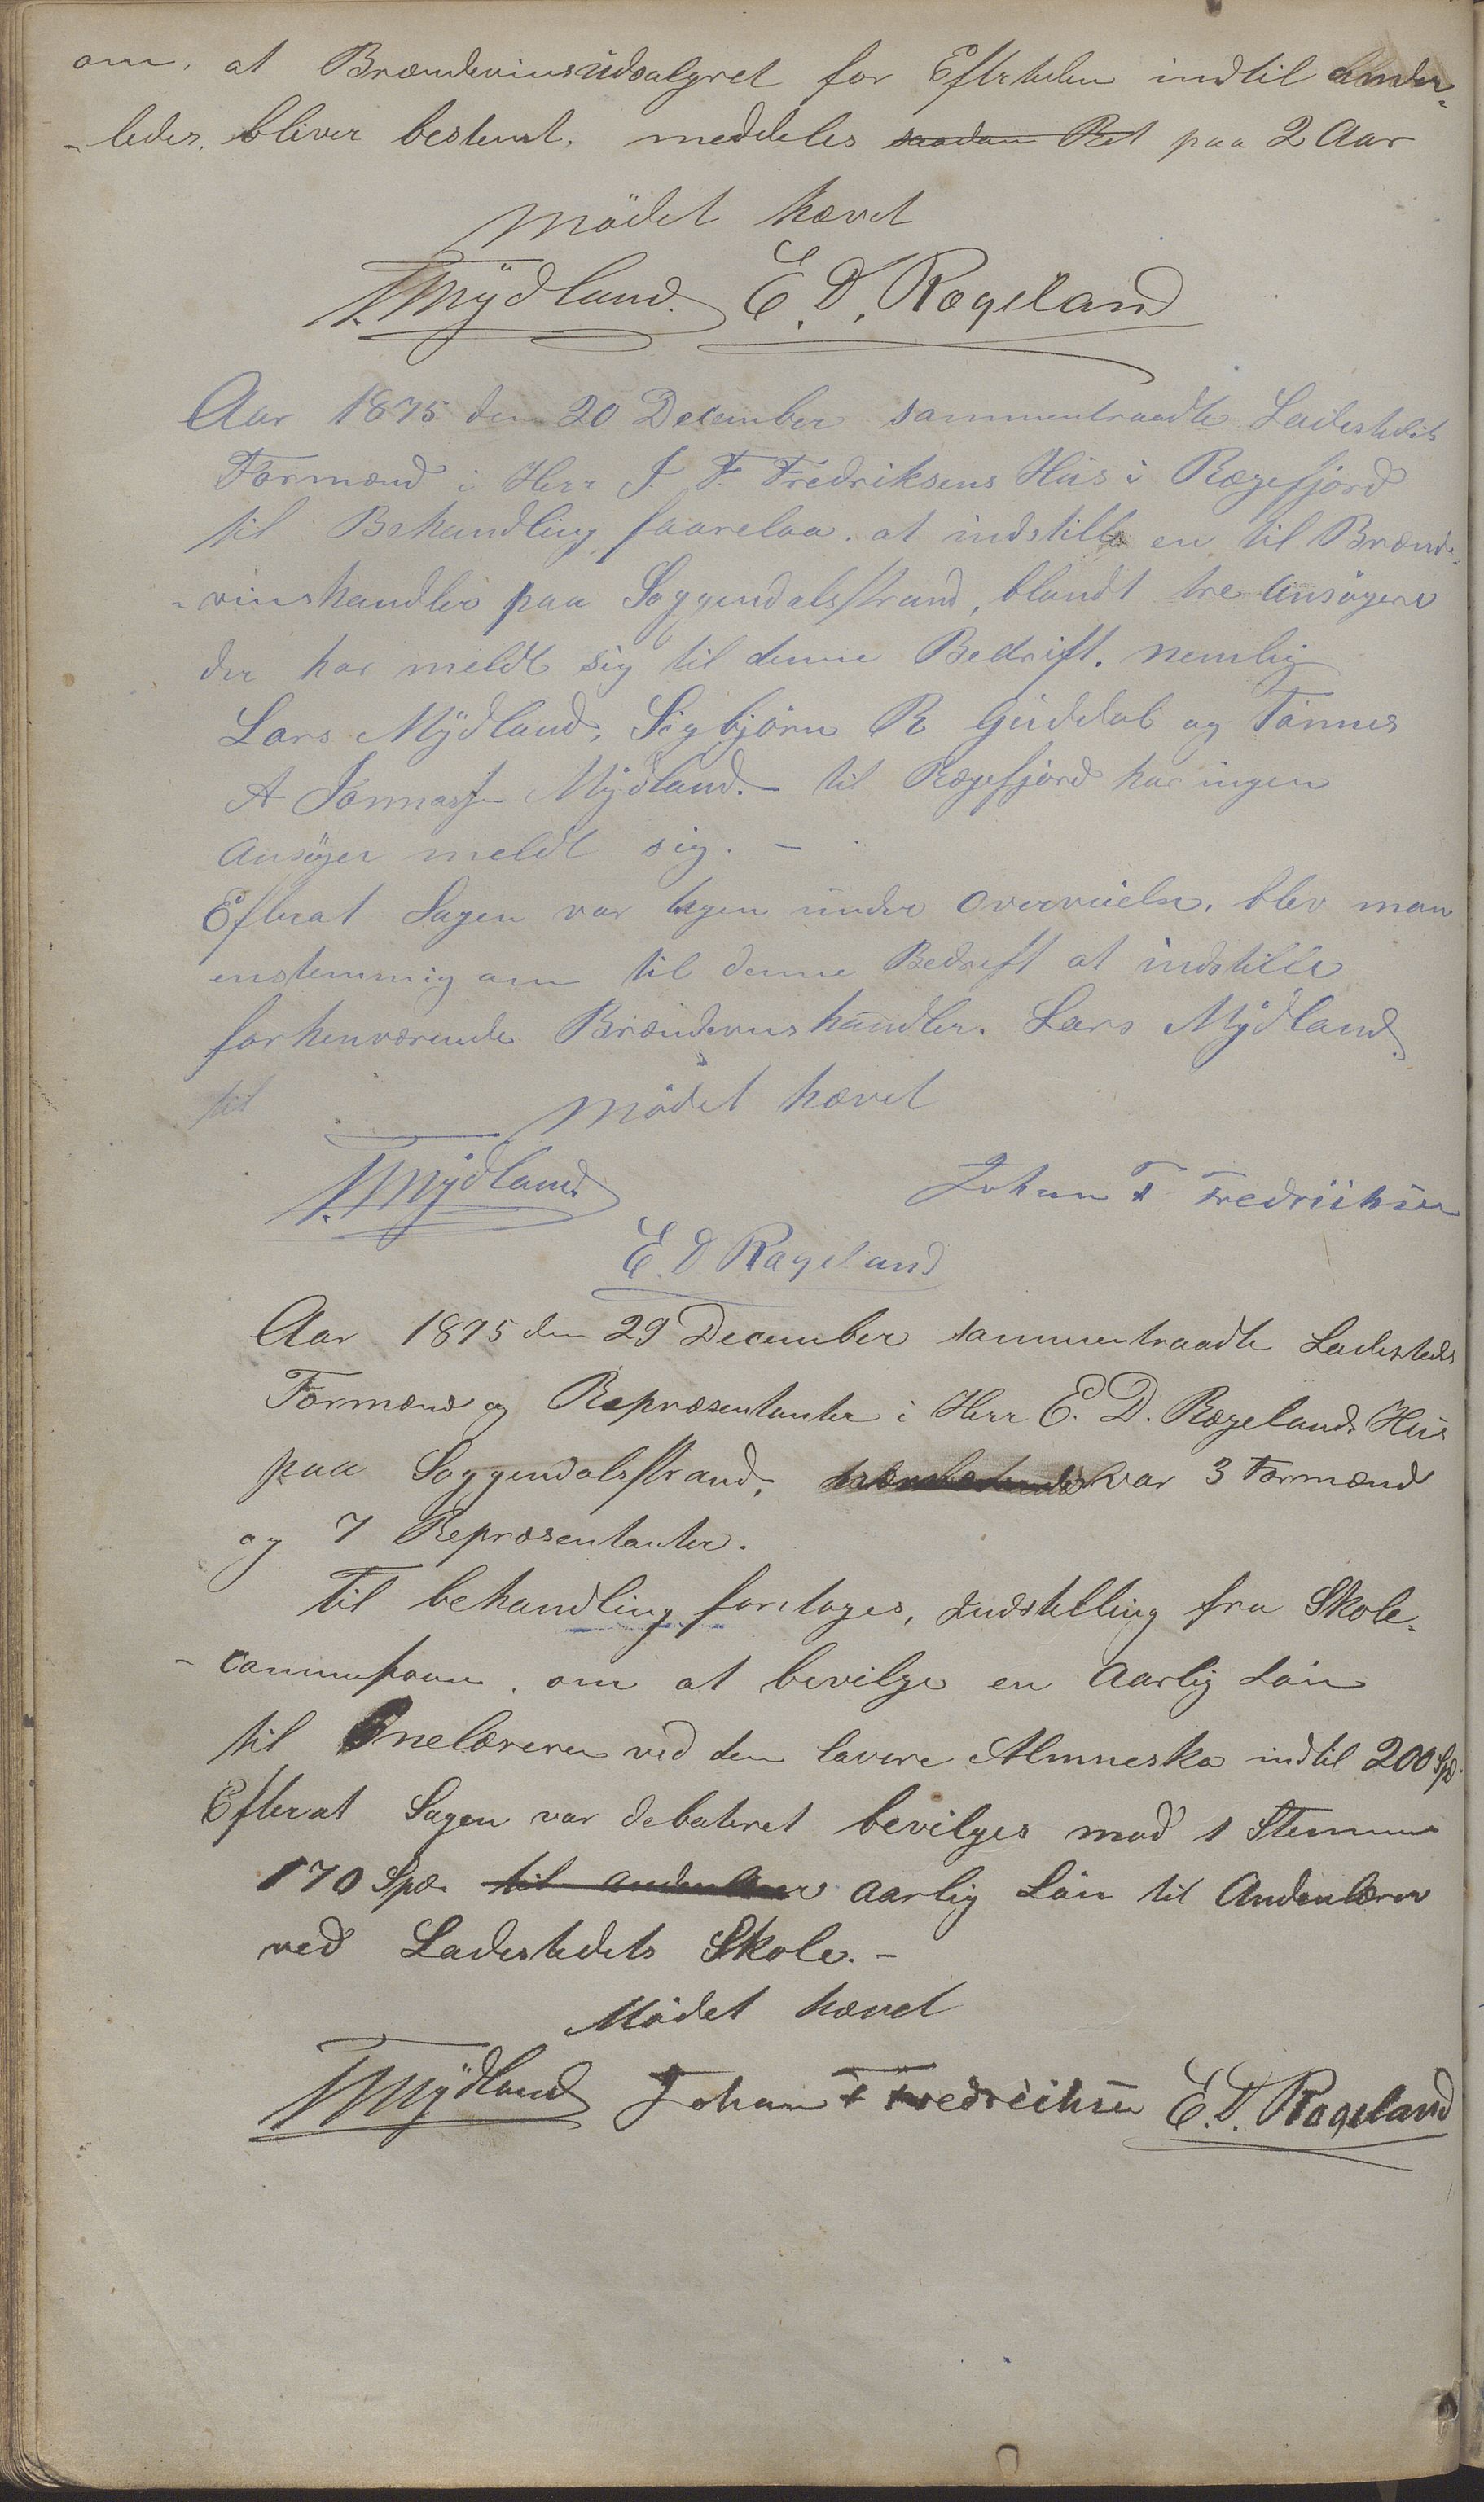 om, at Brændevinsudsalgret for Eftertiden indtil ander-
-ledes, bliver bestemt, meddeles saadan Ret paa 2 Aar
Mödet hævet
T. Mÿdland. E. D. Rægeland
Aar 1875 den 20 December sammentraadte Ladestedets
Formænd i Herr J. F. Fredriksens Hus i Rægefjord
til Behandling faarelaa at indstille en til Brænde-
-vinshandler paa Soggendalsstrand, blandt tre Ansögere
der har meldt sig til denne Bedrift. nemlig
Lars Mÿdland, Sigbjörn R Guddal og Tönnes
A Jonnassen Mÿdland. - til Rægefjord har ingen
Ansöger meldt sig. -
Efterat Sagen var tagen under Overveielse, blev man
enstemmig om til denne Bedrift at indstille
forhenværende Brændevinshandler. Lars Mÿdland
til
Mödet hævet
T. Mÿdland Johan F Fredriichsen
E. D Rægeland
Aar 1875 den 29 December sammentraadte Ladesteds
Formænd og Repræsentanter i Herr E. D. Rægelands Hus
paa Soggendalsstrand, var 3 Formænd
og 7 Repræsentanter.
Til behandling foretoges, Indstilling fra Skole-
-commissionen, om at bevilge en Aarlig Lön
til nelæreren ved den lavere Almueskole indtil 200 Spd.
Efterat Sagen var debateret bevilges mod 1 Stemme
170 Spd. til andenlærer aarlig Lön til Andenlærer
ved Ladestedets Skole. -
Mödet hævet
T. Mÿdland Johan F Fredreichsen E. D. Rægeland